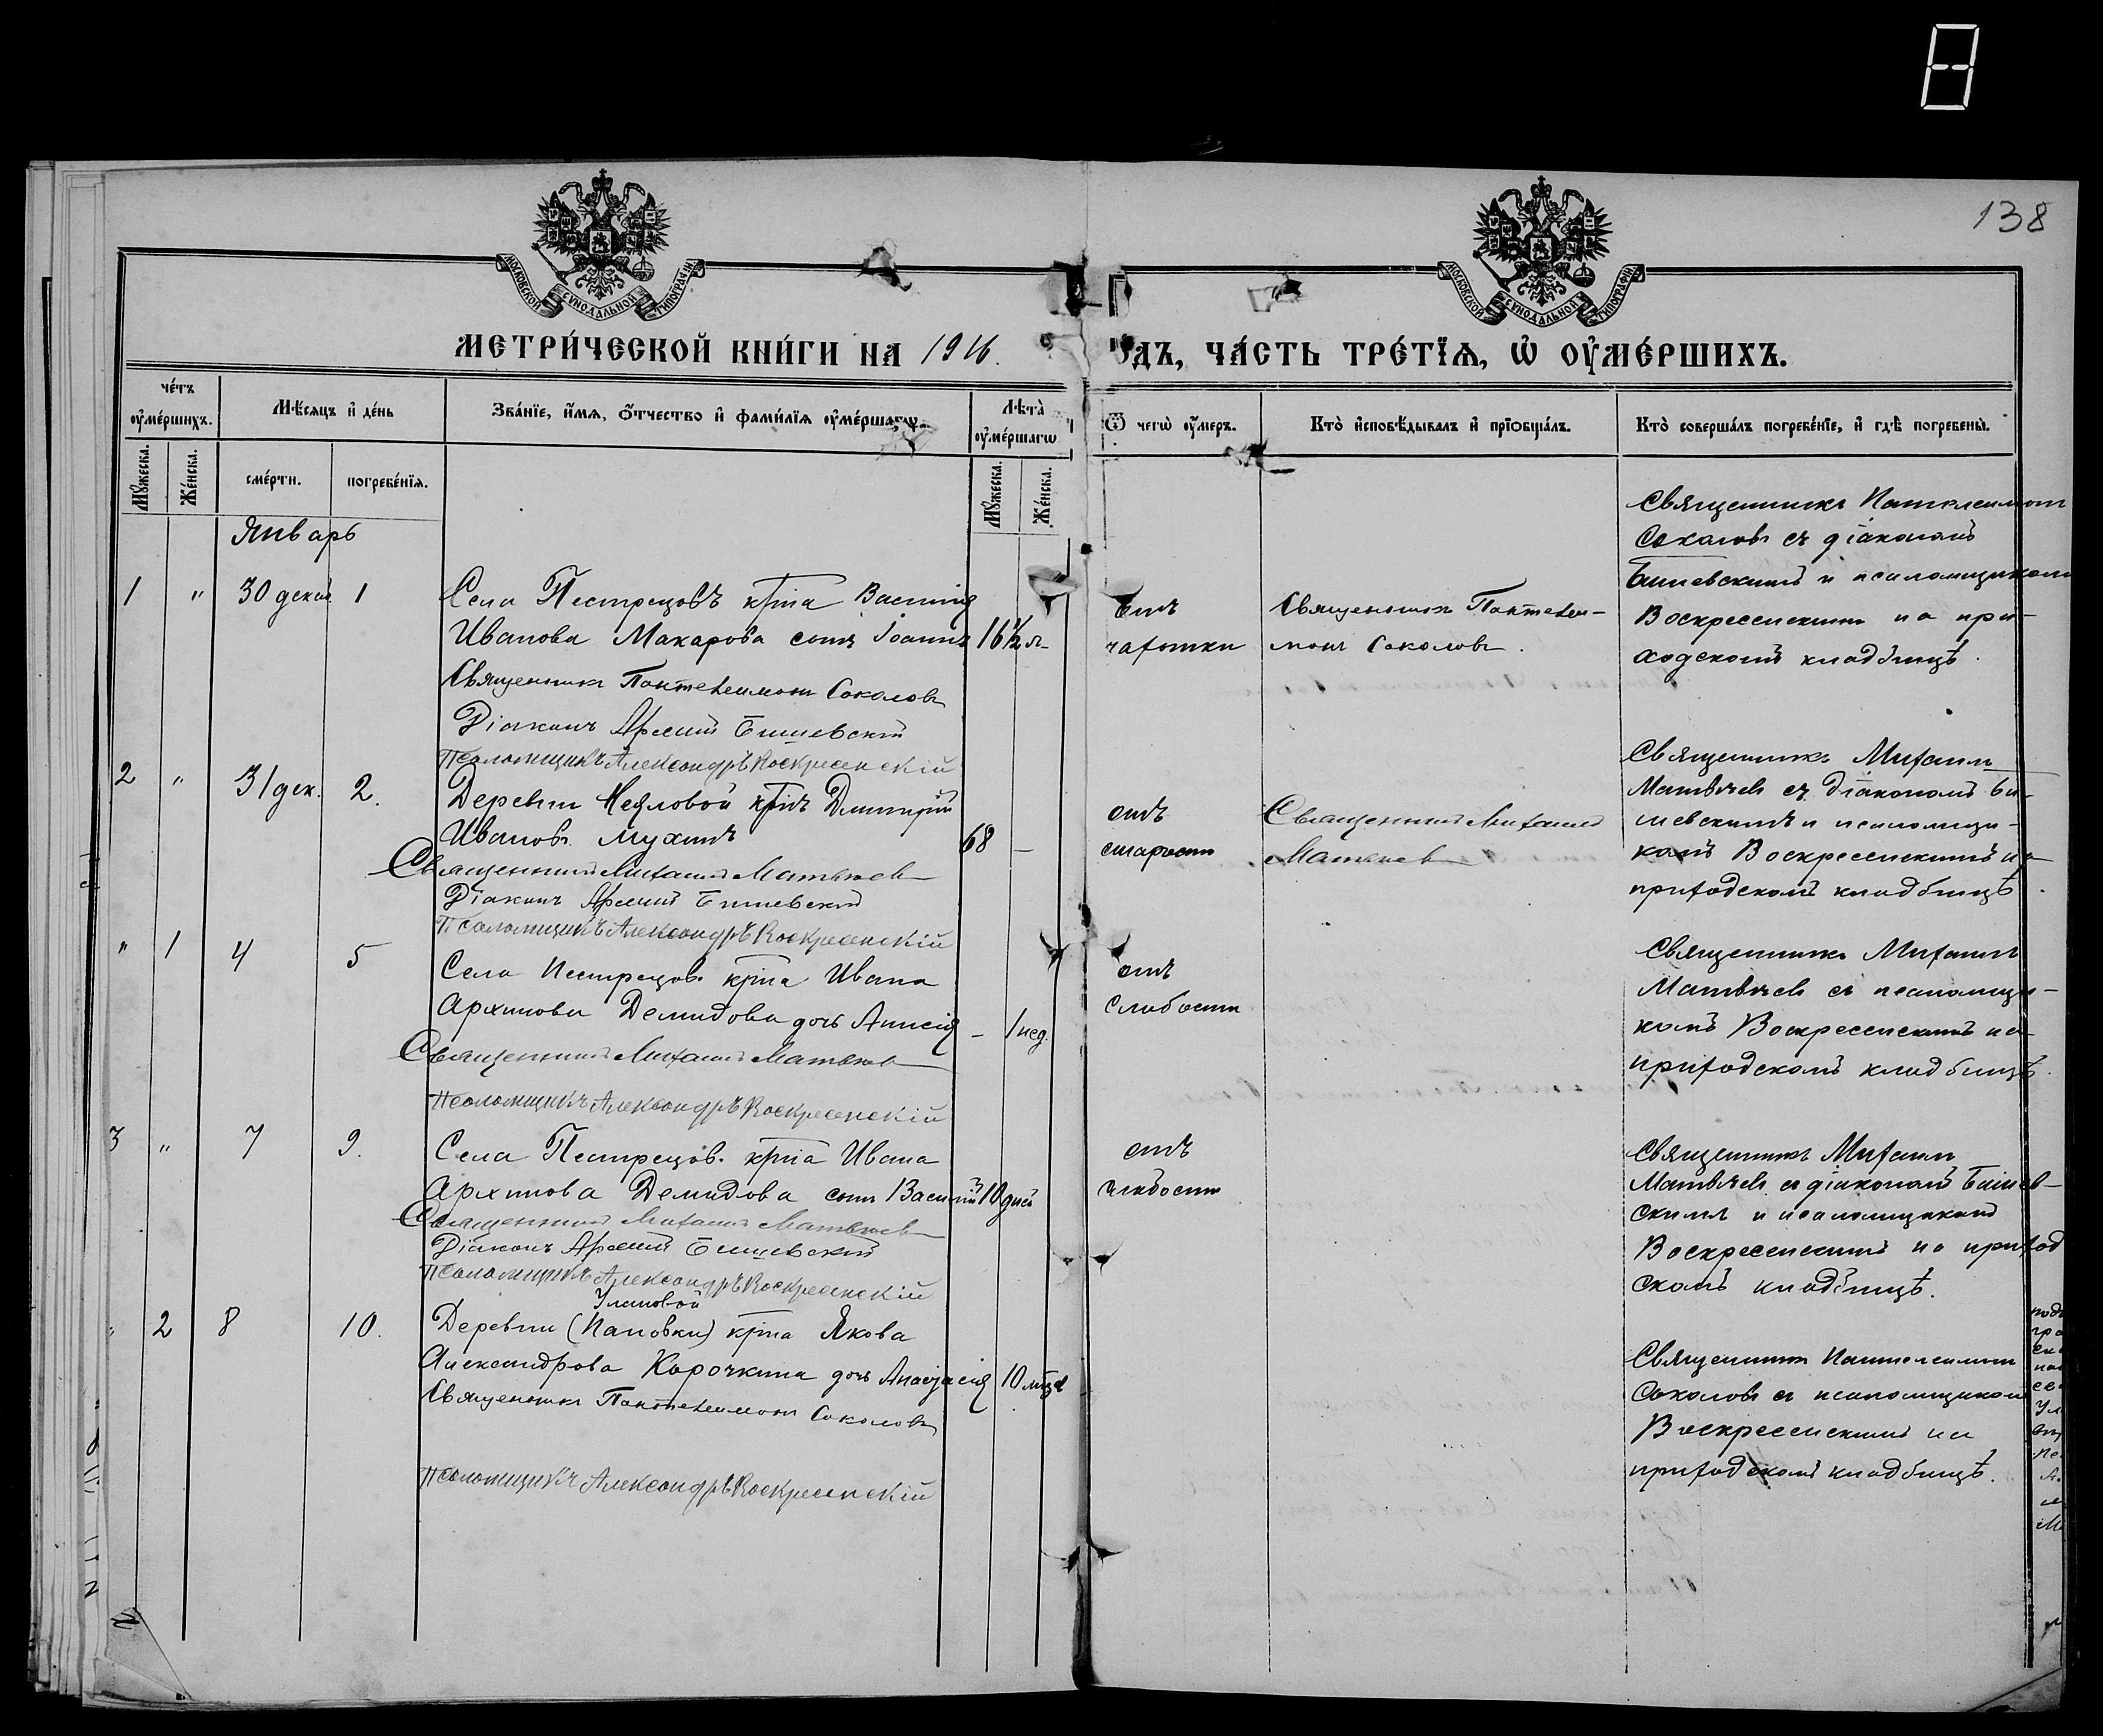 138
МОСКОВСКОЙ СУНОДАЛЬНОЙ ТИПОГРАФІИ.
МОСКОВСКОЙ СУНОДАЛЬНОЙ ТИПОГРАФІИ.
МЕТРИ́ЧЕСКОЙ КНИ́ГИ НА 1916.
ОДЪ, ЧА́СТЬ ТРЕ́ТЇѦ, Ѡ҆ ОУ҆МЕ́РШИХЪ.
Че́тъ оу҆ме́ршихъ.
Мѣ́сяцъ и҆ де́нь
Зва́нїе, и҆́мя, о҆́тчество и҆ фами́лїя оу҆ме́ршагѡ.
Лѣта̀ оу҆ме́ршагѡ
Ѿ чегѡ̀ оу҆́меръ.
Кто̀ и҆сповѣ́дывалъ и҆ прїѻбща́лъ.
Кто̀ соверша́лъ погребе́нїе, и҆ гдѣ̀ погребены̀.
Мꙋ́жеска.
Же́нска.
сме́рти.
погребе́нїя.
Мꙋ́жеска.
Же́нска.
Январь
1 " 30 декаб. 1
Села Пестрецовъ крѣа Василія
Иванова Макарова сынъ Іоаннъ 16½ л.
Священникъ Пантелеимонъ Соколовъ
Діаконъ Арсеній Бишевскій
Псаломщикъ Александръ Воскресенскій
отъ
чахотки
Священникъ Пантелеи-
монъ Соколовъ.
Священникъ Пантелеимонъ
Соколовъ съ діакономъ
Бишевскимъ и псаломщикомъ
Воскресенскимъ на при-
ходскомъ кладбищѣ.
2 " 31 дек. 2.
Деревни Неяловой крнъ Димитрій
Ивановъ Мухинъ 68 –
Священникъ Михаилъ Матвѣевъ
Діаконъ Арсеній Бишевскій
Псаломщикъ Александръ Воскресенскій
отъ
старости
Священникъ Михаилъ
Матвѣевъ
Священникъ Михаилъ
Матвѣевъ съ діакономъ Би-
шевскимъ и псаломщи-
комъ Воскресенскимъ на
приходскомъ кладбищѣ.
" 1 4 5
Села Пестрецов. крѣа Ивана
Архипова Демидова дочь Анисія – 1 нед.
Священникъ Михаилъ Матвѣевъ
Псаломщикъ Александръ Воскресенскій
отъ
слабости
Священникъ Михаилъ
Матвѣевъ съ псаломщи-
комъ Воскресенскимъ на
приходскомъ кладбищѣ.
3 " 7 9.
Села Пестрецов. крѣа Ивана
Архипова Демидова сынъ Василій 10 дней
Священникъ Михаилъ Матвѣевъ
Діаконъ Арсеній Бишевскій
Псаломщикъ Александръ Воскресенскій
отъ
слабости
Священникъ Михаилъ
Матвѣевъ съ діакономъ Бишев-
скимъ и псаломщикомъ
Воскресенскимъ на приход
скомъ кладбищѣ.
" 2 8 10.
Улановой
Деревни (Пановки) крѣа Якова
Александрова Карочкина дочь Анастасія 10 мѣс.
Священникъ Пантелеимонъ Соколовъ
Псаломщикъ Александръ Воскресенскій
Священникъ Пантелеимонъ
Соколовъ съ псаломщикомъ
Воскресенскимъ на
приходскомъ кладбищѣ.